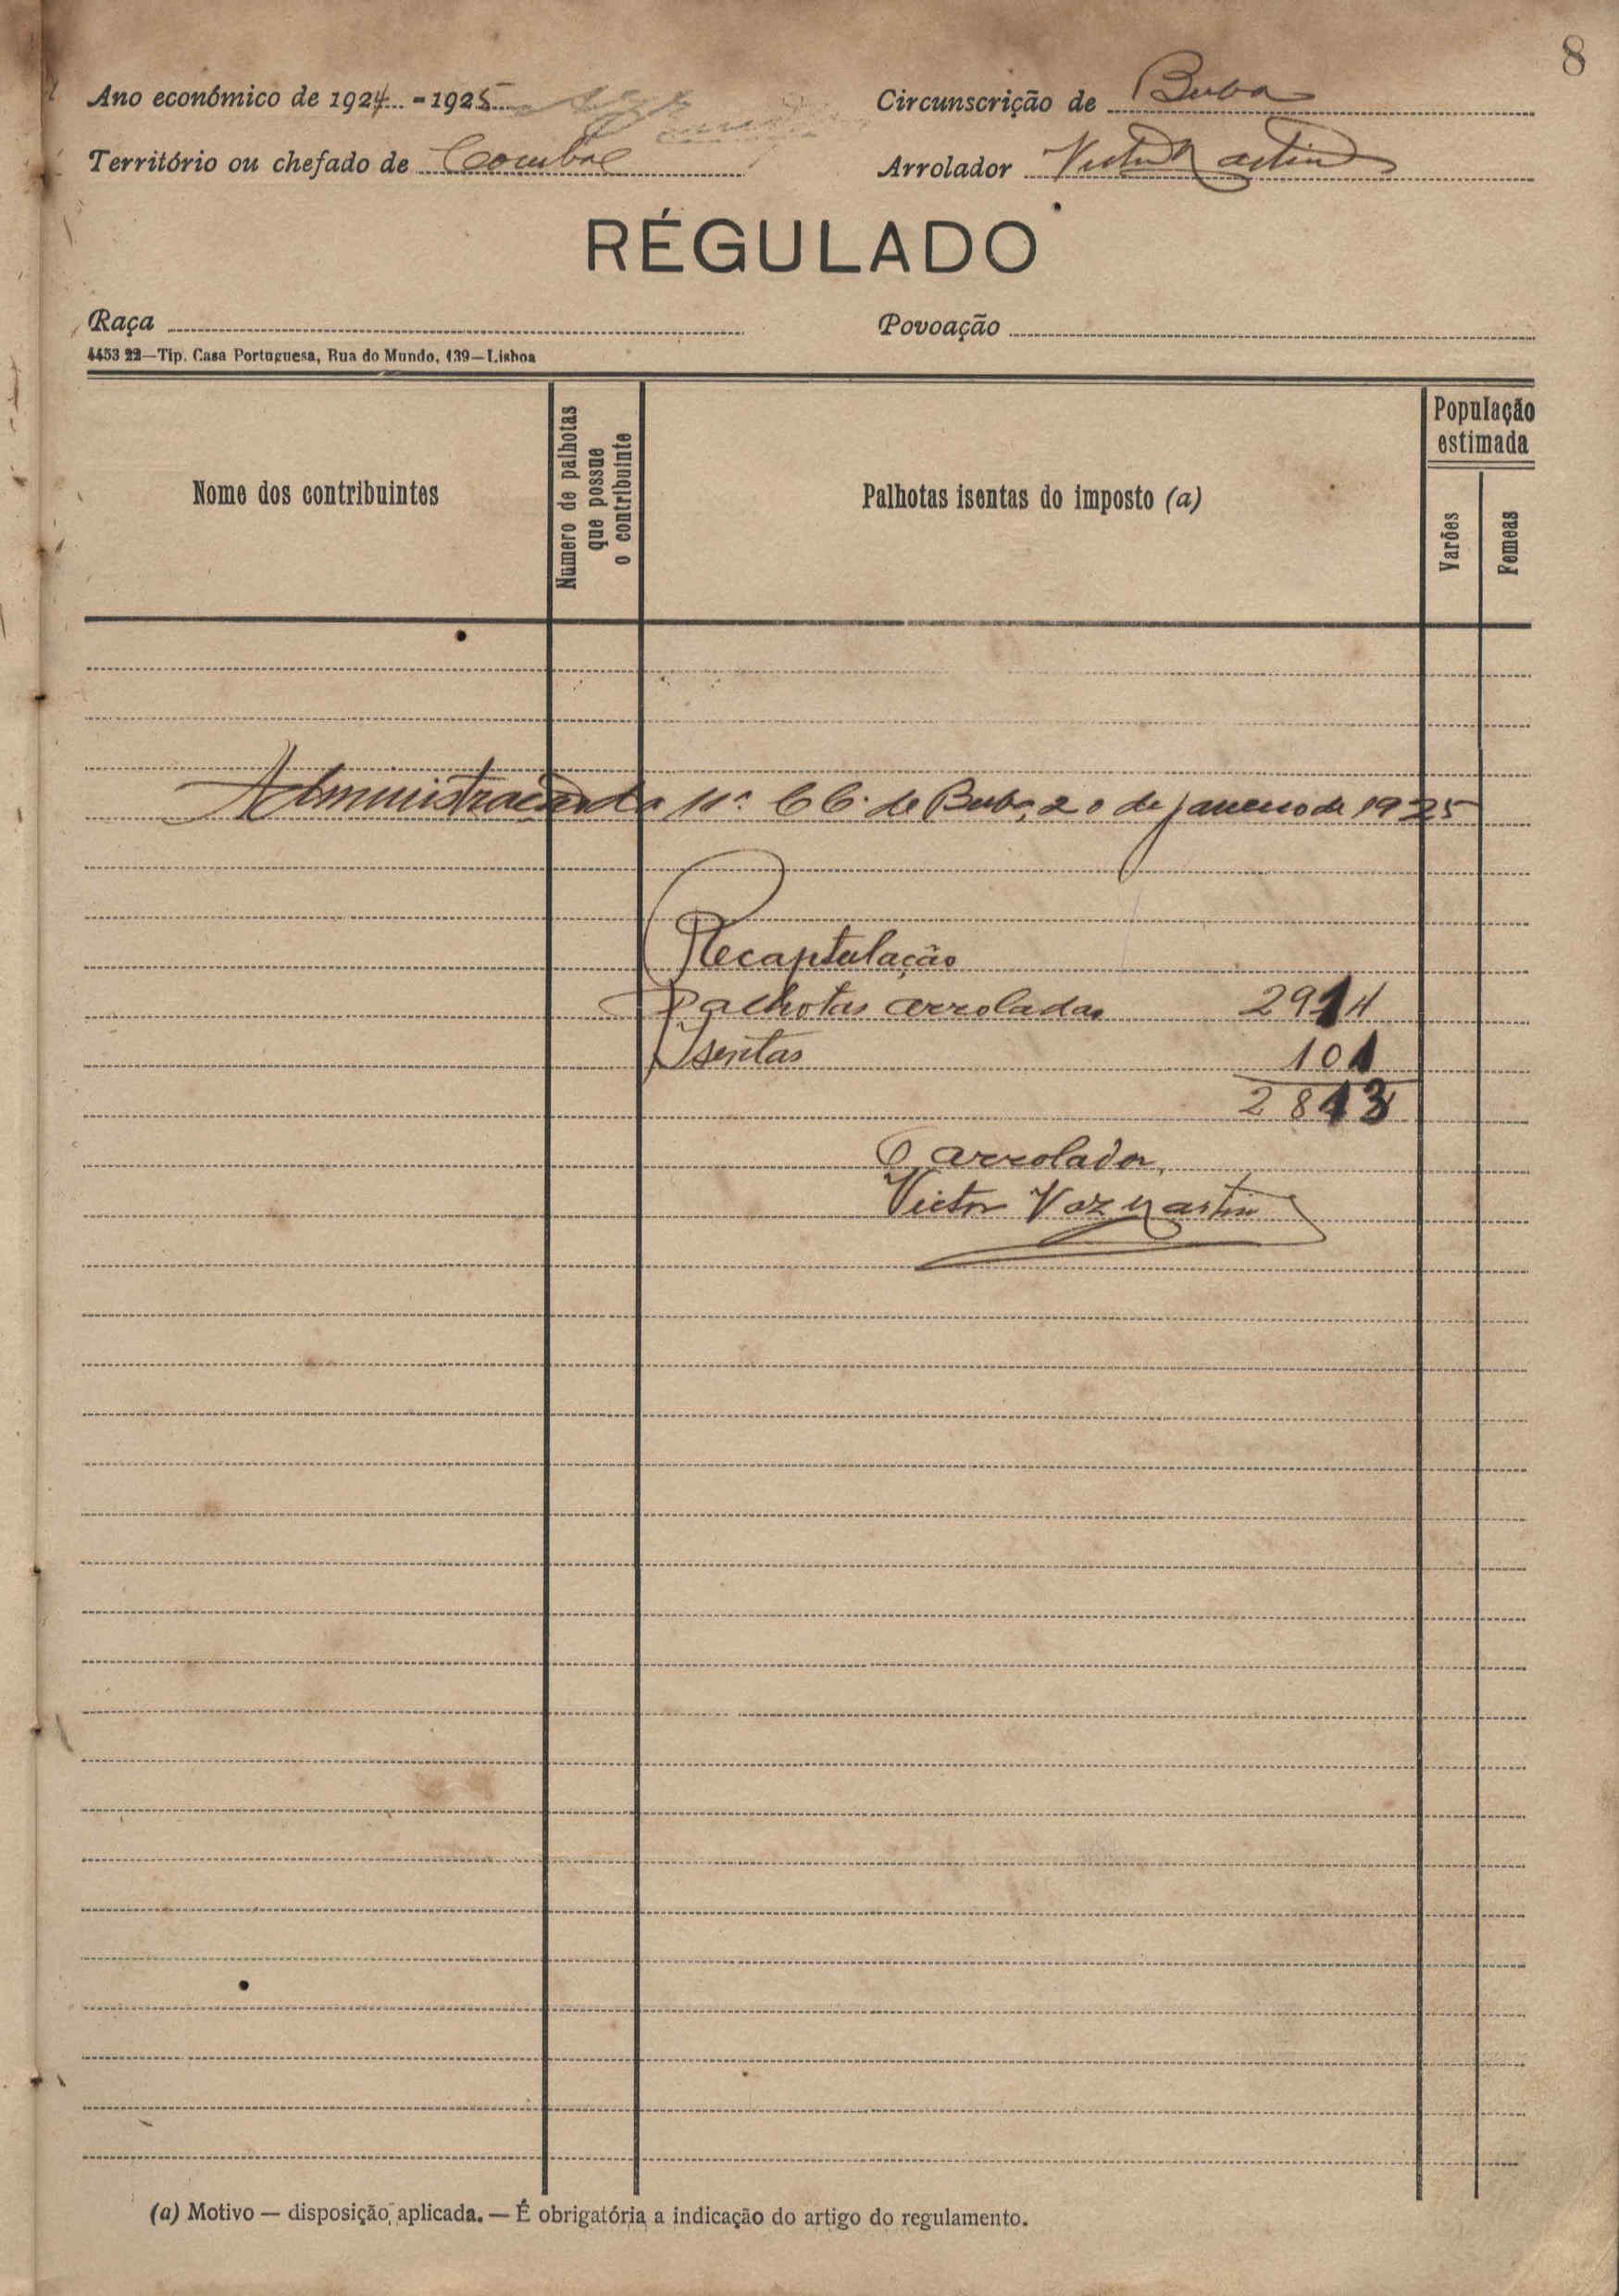 8
Ano económico de 1924 - 1925
Circunscrição de Buba
Território ou chefado de Corubal
Arrolador Victor Martins
RÉGULADO
Raça
Povoação
4453 22—Tip. Casa Portuguesa, Rua do Mundo, 139—Lisboa
Nome dos contribuintes
Número de palhotas
que possue
o contribuinte
Palhotas isentas do imposto (a)
População
estimada
Varões
Femeas
Administração da de Buba, 20 de janeiro de 1925
Recaptulação
Palhotas arroladas 2914
Isentas 101
2813
O arrolador,
Victor Vaz Martins
(a) Motivo — disposição aplicada. — É obrigatória a indicação do artigo do regulamento.